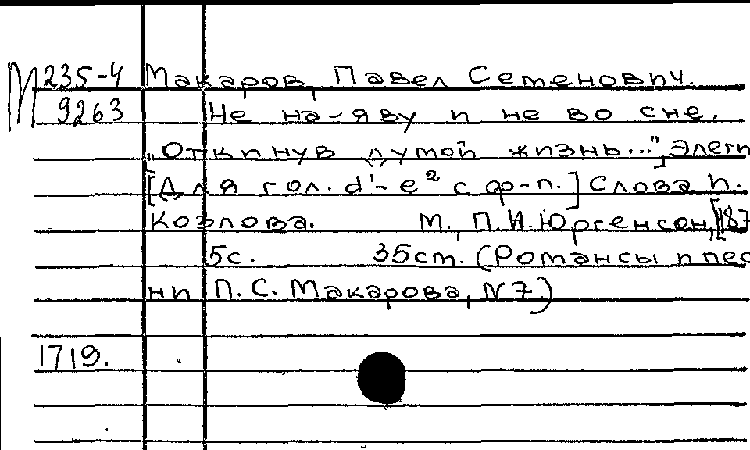 М 235-4 Макаров, Павел Семенович.
9263 Не на-яву и не во сне.
„Откинув думой жизнь...", Элеги
[Для гол. d¹-e² с ф-п.] Слова И.
Козлова. М., П.И. Юргенсон, [187
5с. 35см. (Романсы и пес
ни П.С. Макарова, N7.)
1719.